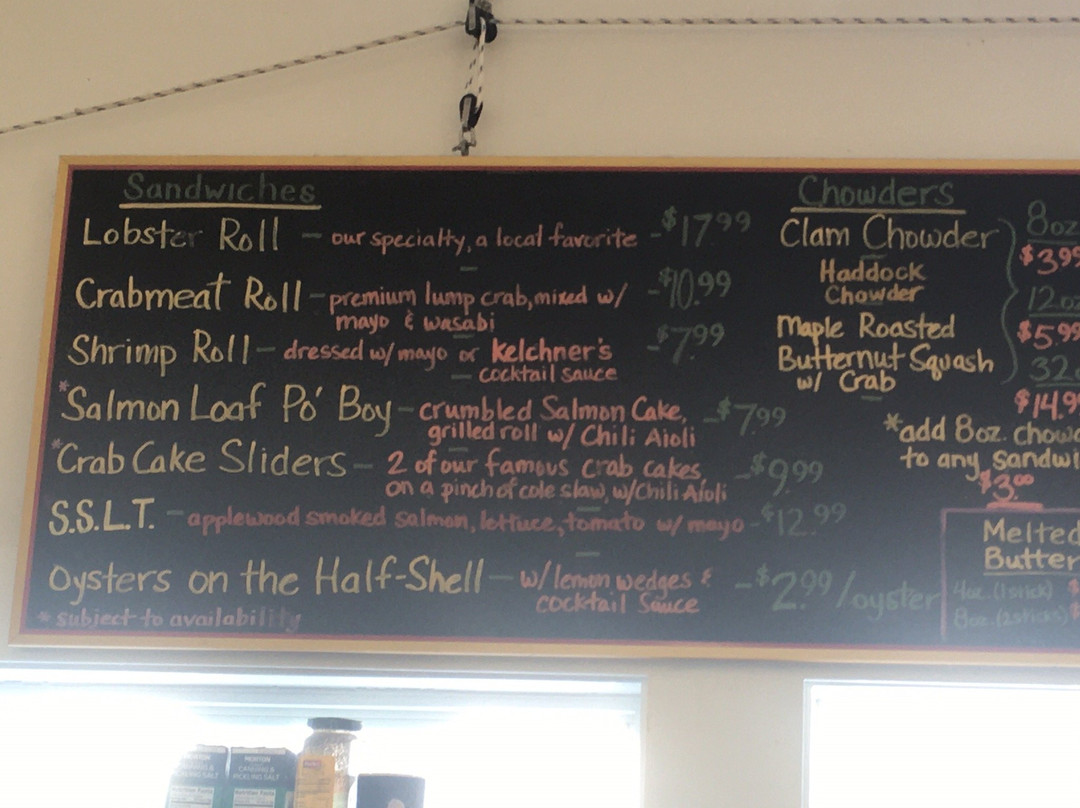 Sandwiches
Lobster Roll - our specialty, a local favorite - $17.99
Crabmeat Roll - premium lump crab, mixed w/ - $10.99
mayo & wasabi
Shrimp Roll - dressed w/ mayo or Kelchner's - $7.99
cocktail sauce
*Salmon Loaf Po' Boy - crumbled Salmon Cake, - $7.99
grilled roll w/ Chili Aioli
*Crab Cake Sliders - 2 of our famous crab cakes - $9.99
on a pinch of cole slaw, w/ Chili Aioli
S.S.L.T. - applewood smoked salmon, lettuce, tomato w/ mayo - $12.99
Oysters on the Half-Shell - w/ lemon wedges & - $2.99/oyster
cocktail Sauce
* subject to availability
Chowders
Clam Chowder
Haddock
Chowder
Maple Roasted
Butternut Squash
w/ Crab
8oz
$3.99
12oz
$5.99
32
$14.9
*add 8oz. chow
to any sandwi
$3.00
Melted
Butter
4oz. (1 stick) $
8oz. (2 sticks) $
MORTON
CANNING &
PICKLING SALT
Nutrition Facts
MORTON
CANNING &
PICKLING SALT
Nutrition Facts